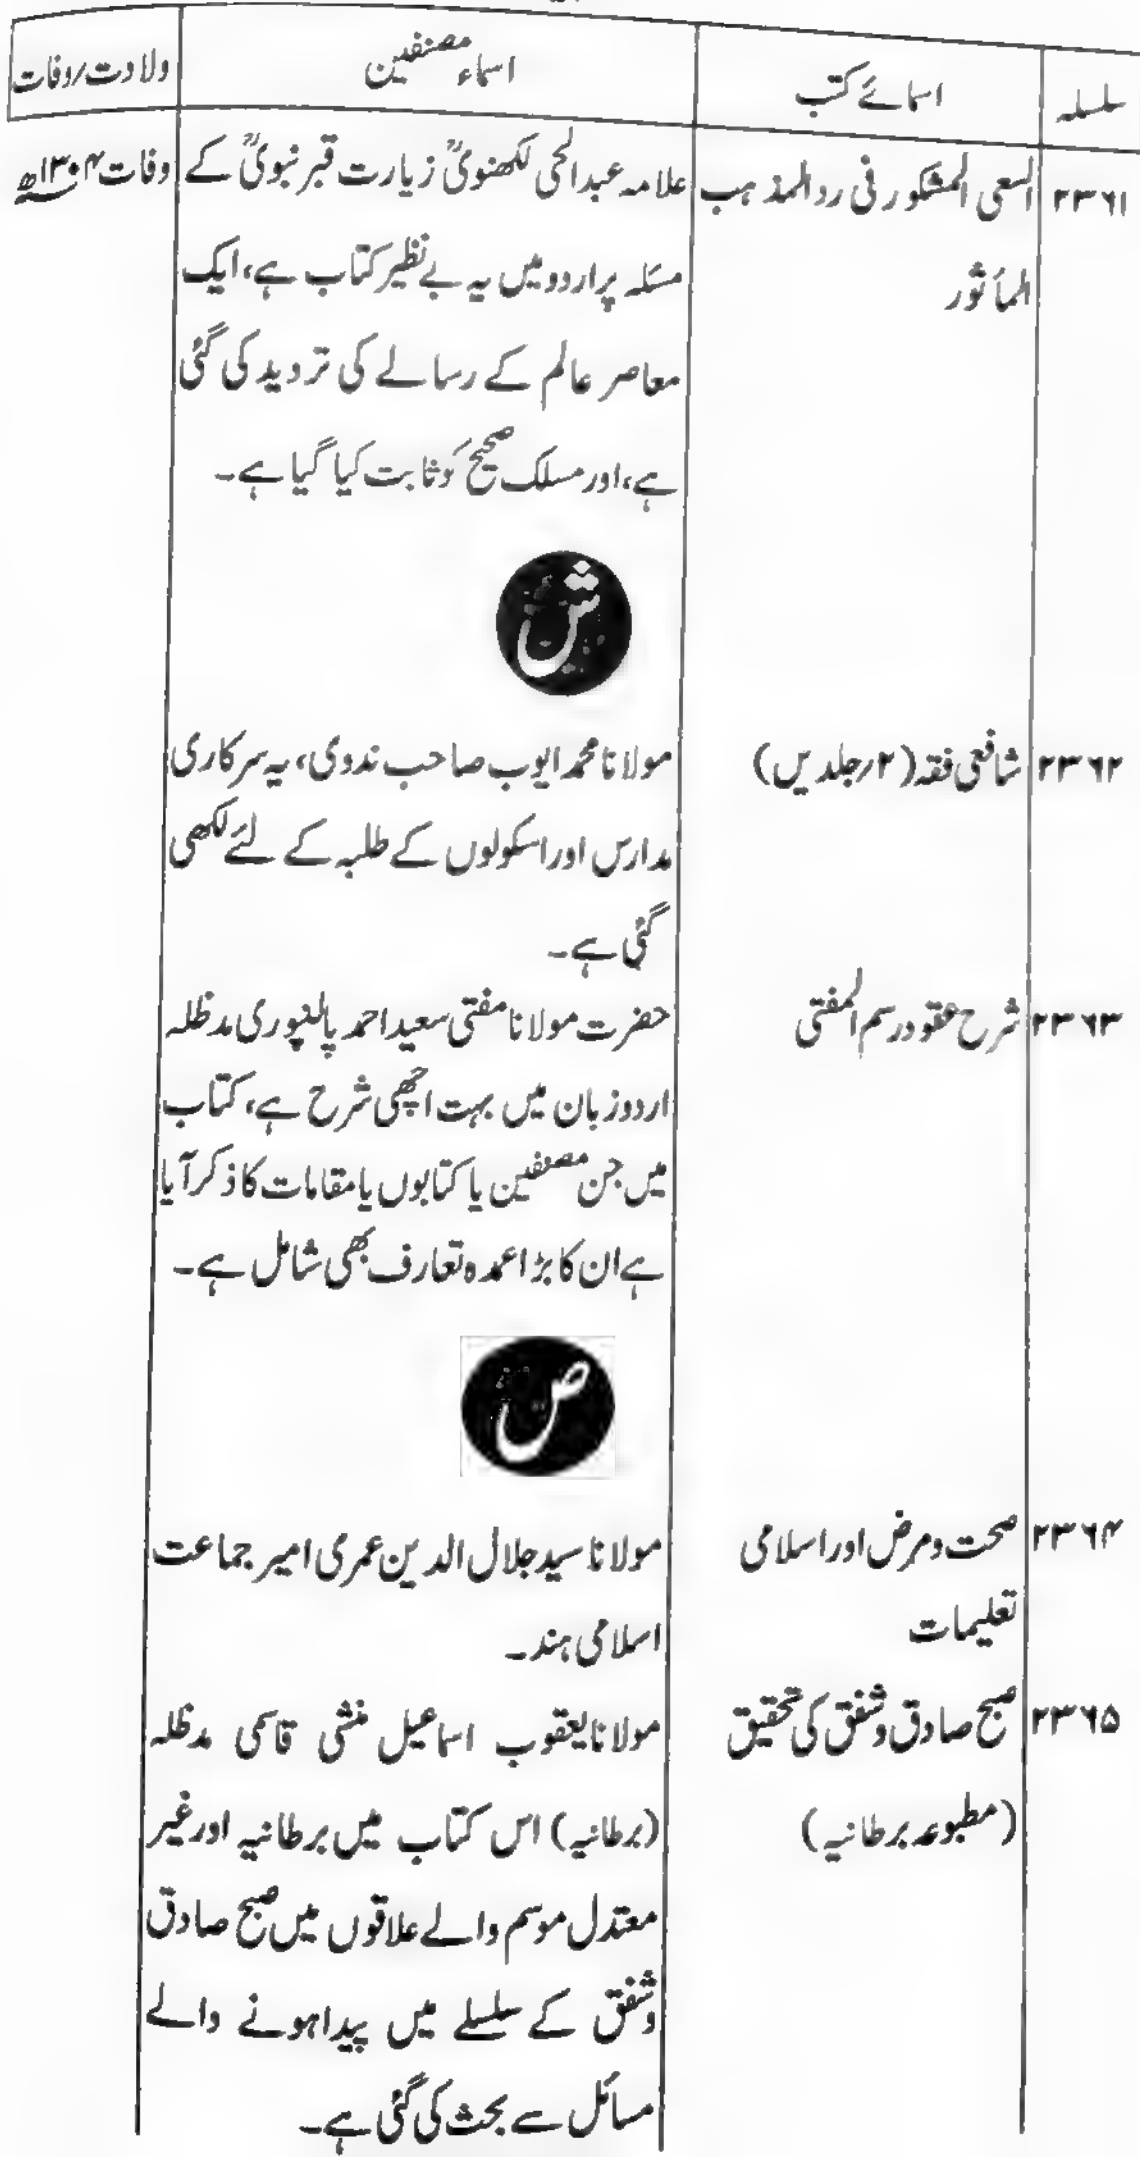 سلسلہ	اسمائے کتب	اسماء مصنفین	ولادت/وفات
۲۳۶۱	السعی المشکور فی رد المذہب	علامہ عبدالحی لکھنویؒ زیارت قبر نبویؐ کے	وفات ۱۳۰۴ھ
المأثور	مسئلہ پر اردو میں یہ بے نظیر کتاب ہے، ایک
معاصر عالم کے رسالے کی تردید کی گئی
ہے، اور مسلک صحیح کو ثابت کیا گیا ہے۔
ش
۲۳۶۲	شافعی فقہ (۲/جلدیں)	مولانا محمد ایوب صاحب ندوی، یہ سرکاری
مدارس اور اسکولوں کے طلبہ کے لئے لکھی
گئی ہے۔
۲۳۶۳	شرح عقود رسم المفتی	حضرت مولانا مفتی سعید احمد پالنپوری مدظلہ
اردو زبان میں بہت اچھی شرح ہے، کتاب
میں جن مصنفین یا کتابوں یا مقامات کا ذکر آیا
ہے ان کا بڑا عمدہ تعارف بھی شامل ہے۔
ص
۲۳۶۴	صحت و مرض اور اسلامی	مولانا سید جلال الدین عمری امیر جماعت
تعلیمات	اسلامی ہند۔
۲۳۶۵	صبح صادق و شفق کی تحقیق	مولانا یعقوب اسماعیل منشی قاسمی مدظلہ
(مطبوعہ برطانیہ)	(برطانیہ) اس کتاب میں برطانیہ اور غیر
معتدل موسم والے علاقوں میں صبح صادق
وشفق کے سلسلے میں پیدا ہونے والے
مسائل سے بحث کی گئی ہے۔